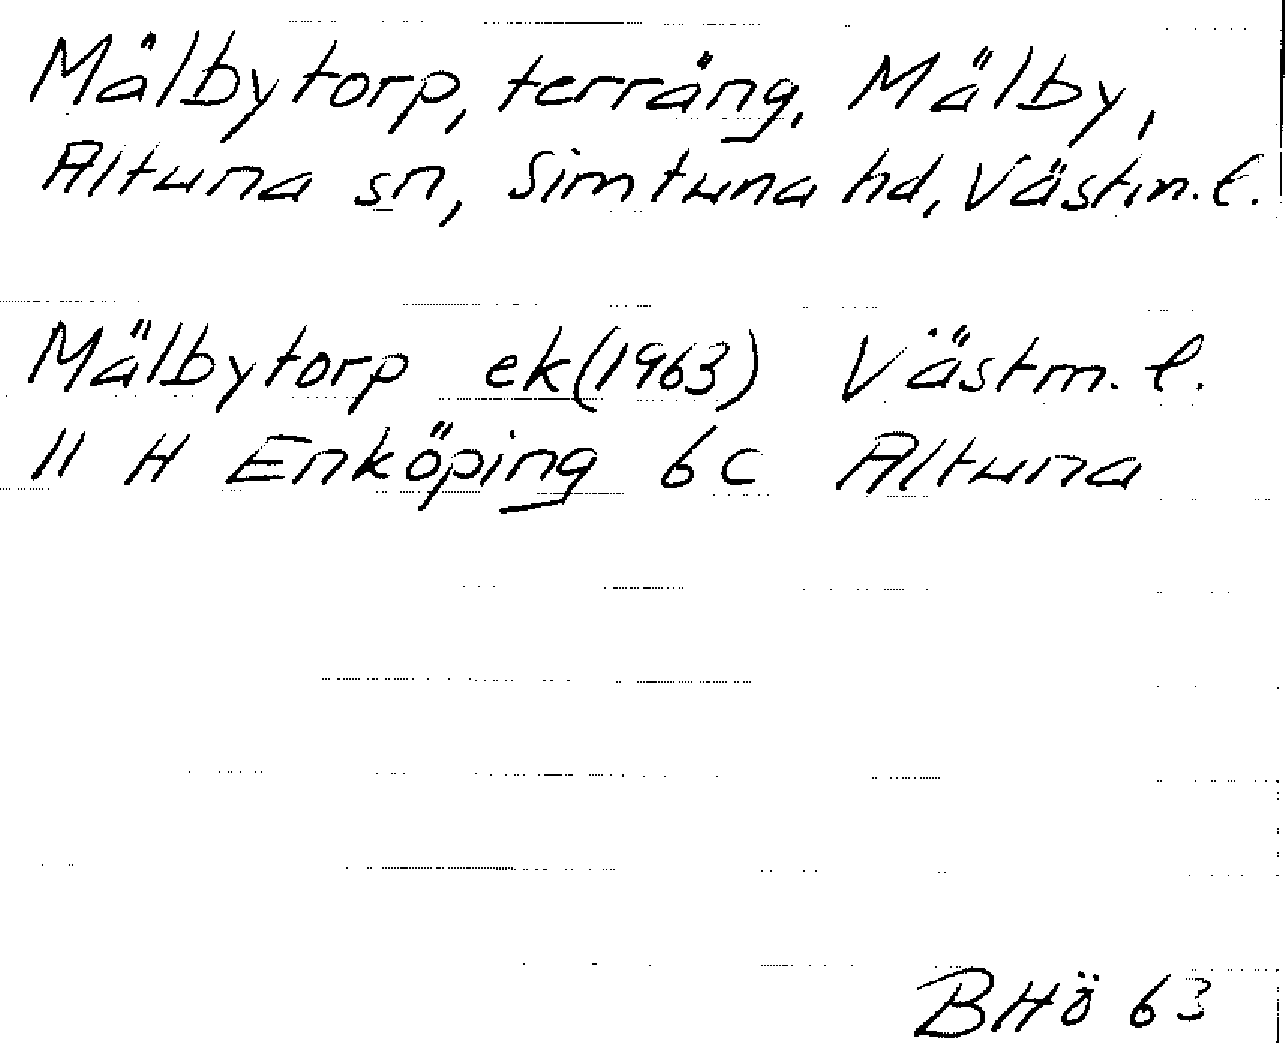 Mälbytorp, terräng, Mälby,
Altuna sn, Simtuna hd, Västm.l.
Mälbytorp ek(1963) Västm.l.
11 H Enköping 6c Altuna
BHö 63